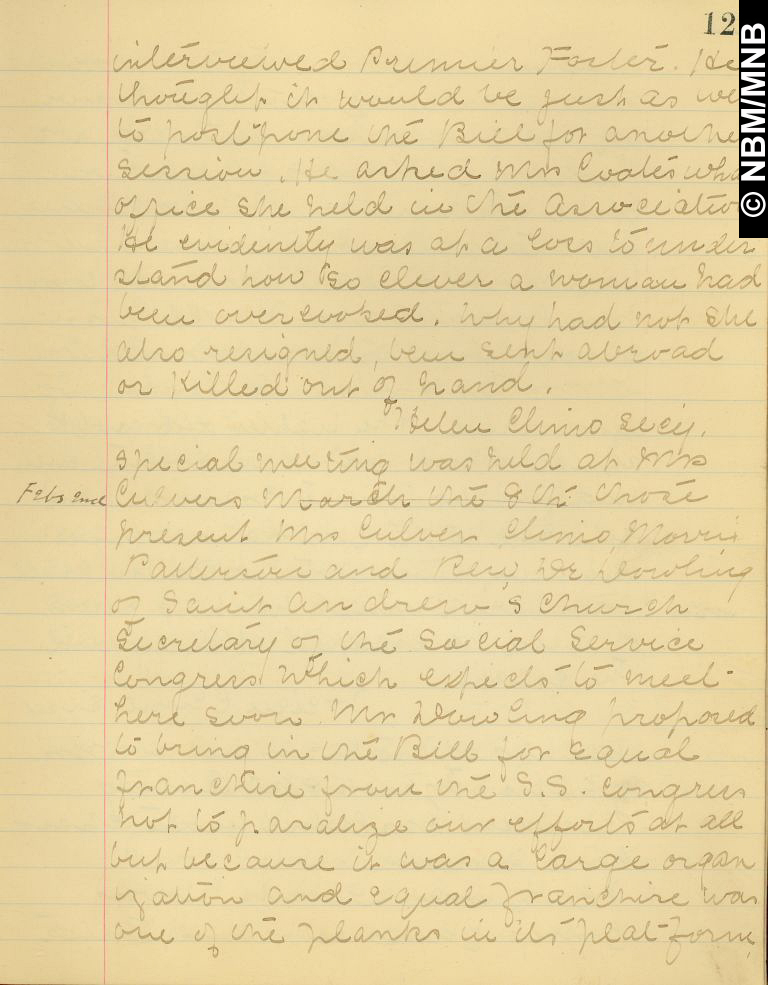 12
© NBM/MNB
interviewed Premier Foster. He
thought it would be just as we
to postpone the Bill for anothe
session. He asked Mrs Coates wha
office she held in the Association
He evidently was at a loss to under
stand how so clever a woman had
been overlooked. Why had not she
also resigned, been sent abroad
or killed out of hand.
Helen Clinio Secy.
Special meeting was held at Mrs
Febs 2nd Culvers March the 8th those
present Mrs Culver Clinio, Morris
Patterson and Rev, Dr Dowling
of Saint Andrew's Church
Secretary of the Social Service
Congress Which expects to meet
here soon Mr Dowling proposed
to bring in the Bill for Equal
franchise from the S.S. Congress
not to paralize our efforts at all
but because it was a large organ
ization and equal franchise was
one of the planks in its platform,